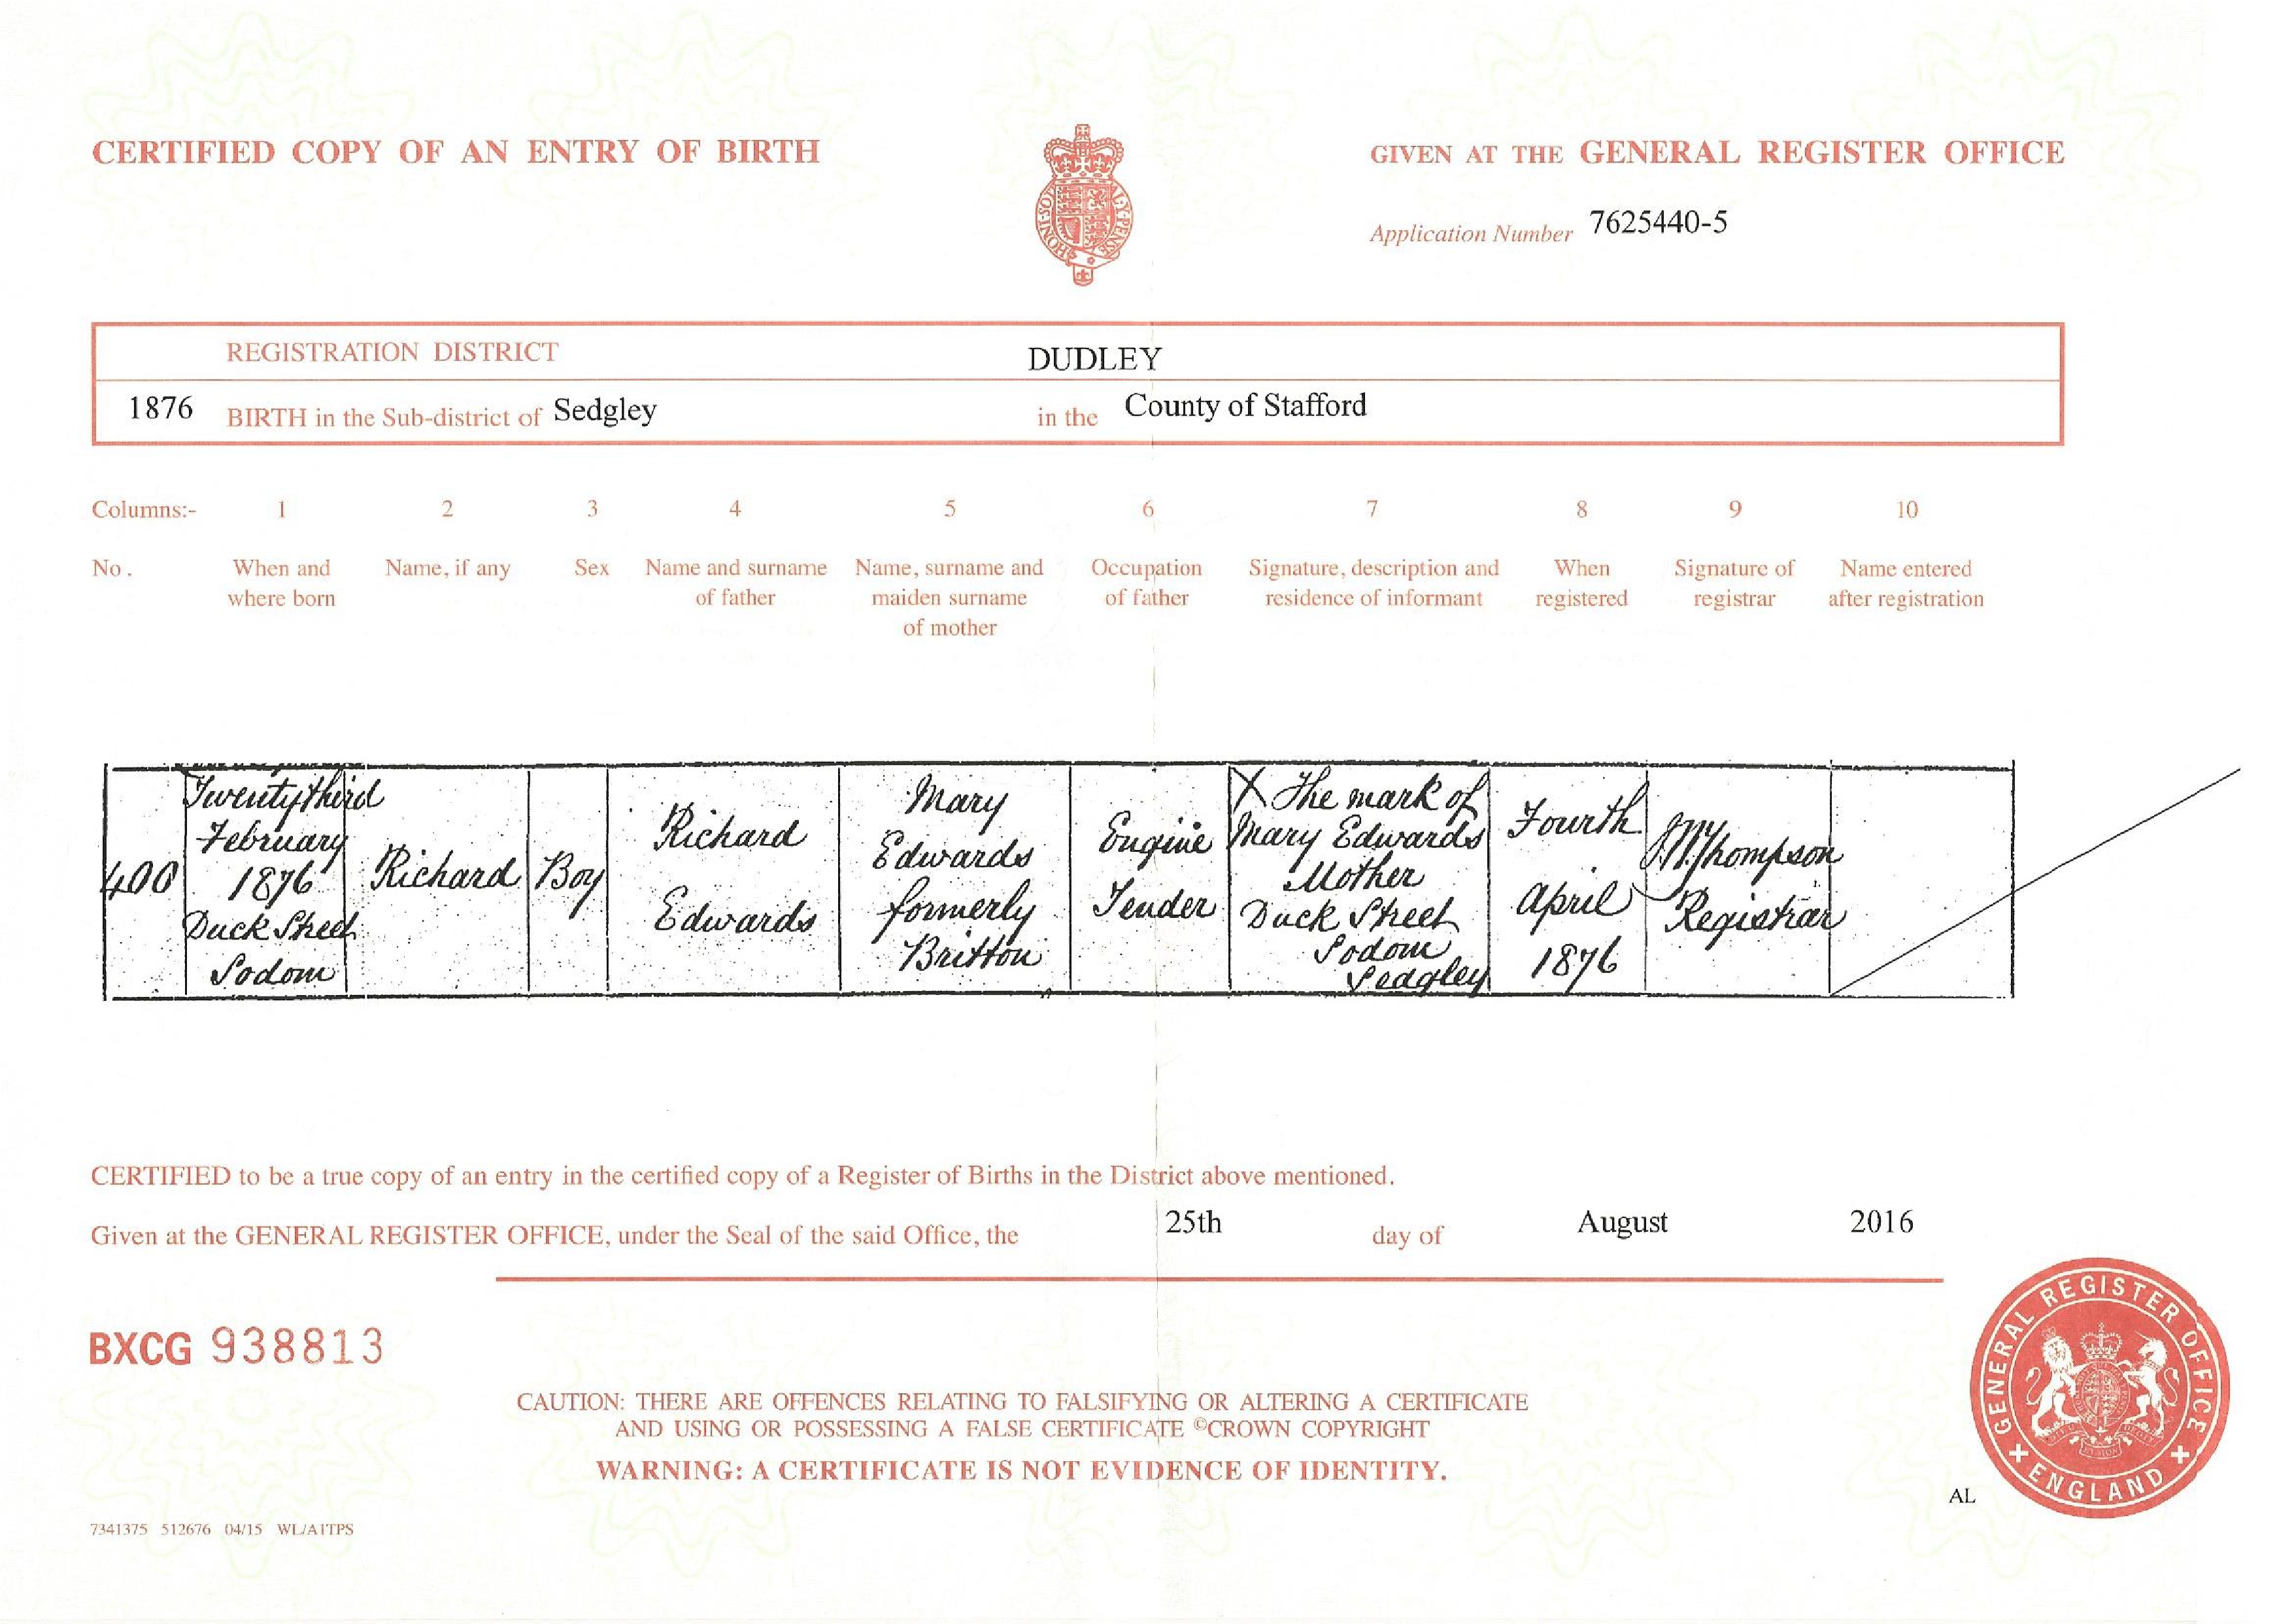 CERTIFIED COPY OF AN ENTRY OF BIRTH
GIVEN AT THE GENERAL REGISTER OFFICE
HONI·SOI
AL·Y·PENSE
Application Number 7625440-5
REGISTRATION DISTRICT DUDLEY
1876 BIRTH in the Sub-district of Sedgley in the County of Stafford
Columns:- 1 2 3 4 5 6 7 8 9 10
No. When and Name, if any Sex Name and surname Name, surname and Occupation Signature, description and When Signature of Name entered
where born of father maiden surname of father residence of informant registered registrar after registration
of mother
400
Twentythird
February
1876
Duck Street
Sodom
Richard
Boy
Richard
Edwards
Mary
Edwards
formerly
Britton
Engine
Tender
X The mark of
Mary Edwards
Mother
Duck Street
Sodom
Sedgley
Fourth
April
1876
Thompson
Registrar
CERTIFIED to be a true copy of an entry in the certified copy of a Register of Births in the District above mentioned.
Given at the GENERAL REGISTER OFFICE, under the Seal of the said Office, the 25th day of August 2016
BXCG 938813
CAUTION: THERE ARE OFFENCES RELATING TO FALSIFYING OR ALTERING A CERTIFICATE
AND USING OR POSSESSING A FALSE CERTIFICATE ©CROWN COPYRIGHT
WARNING: A CERTIFICATE IS NOT EVIDENCE OF IDENTITY.
GENERAL REGISTER OFFICE
ENGLAND
AL
7341375 512676 04/15 WL/A1TPS